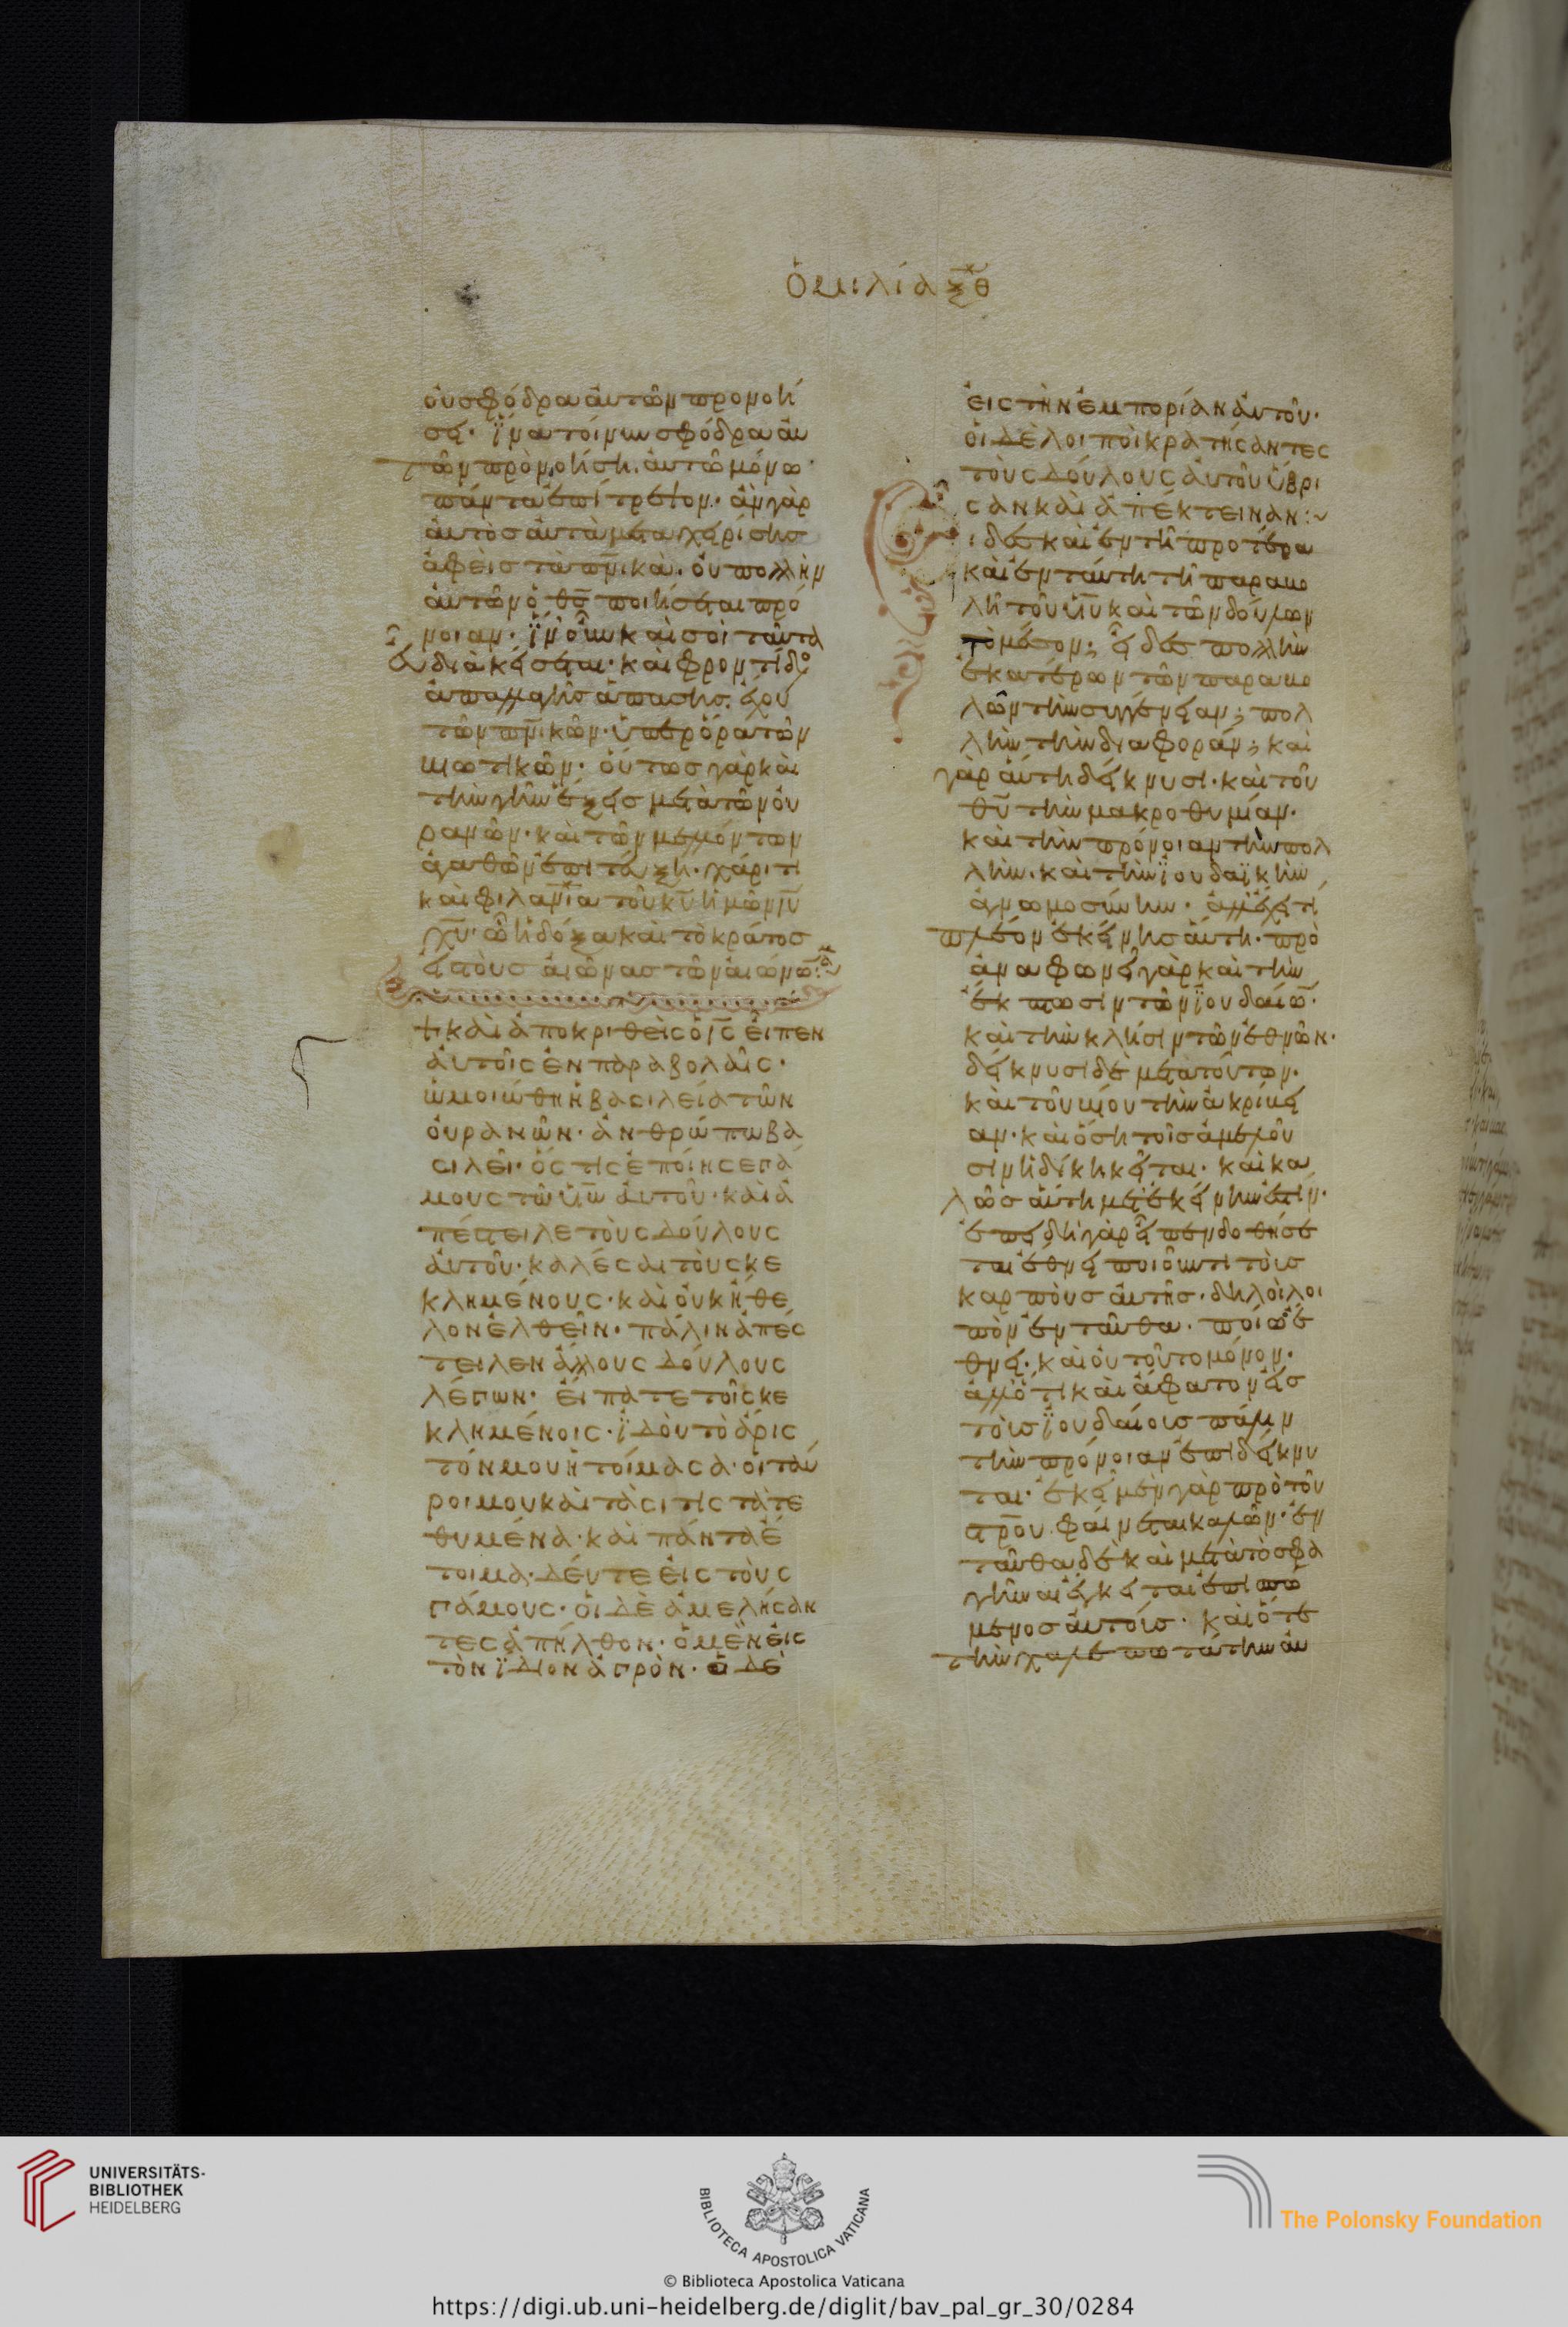 ὁμιλία ξθ
οὐ σφόδρα αὐτῶν προνοή
σει· ἵνα τοίνυν σφόδρα αὐ
τῶν προνοήση, αὐτῶ μόνω
πάντα ἐπίτρεψον· ἂν γὰρ
αὐτὸς αὐτὰ μεταχειρίσης
ἀφεὶς τὰ πνικὰ· οὐ πολλὴν
αὐτῶν ὁ θς ποιήσεται πρό
νοιαν· ἵν' οὖν καὶ σοὶ ταῦτα
εὖ διακείσεται· καὶ φροντίδο
ἀπαλλαγῆς ἁπάσης, ἔχου
τῶν πνικῶν· ὑπερόρα τῶν
βιωτικῶν· οὕτως γὰρ καὶ
τὴν γῆν ἕξεις μετὰ τῶν οὐ
ρανῶν· καὶ τῶν μελλόντων
ἀγαθῶν ἐπιτεύξη· χάριτι
καὶ φιλανία τοῦ κυ ἡμῶν ιυ
χυ· ὧ ἡ δόξα καὶ τὸ κράτος
εἰς τοὺς αἰῶνας τῶν αἰώνω
καὶ ἀποκριθεὶς ὁ ις εἶπεν
αὐτοῖς ἐν παραβολαῖς·
ὡμοιώθη ἡ βασιλεία τῶν
οὐρανῶν· ἀνθρώπω βα
σιλεῖ· ὅστις ἐποίησε γά
μους τῶ υιω αὐτοῦ· καὶ ἀ
πέστειλε τοὺς δούλους
αὐτοῦ· καλέσαι τοὺς κε
κλημένους· καὶ οὐκ ἤθε
λον ἐλθεῖν· πάλιν ἀπέσ
τειλεν ἄλλους δούλους
λέγων· εἴπατε τοῖς κε
κλημένοις· ἰδοὺ τὸ ἄρισ
τόν μου ἡτοίμασα· οἱ ταῦ
ροι μου καὶ τὰ σιτιστὰ τε
θυμένα· καὶ πάντα ἕ
τοιμα· δεῦτε εἰς τοὺς
γάμους· οἱ δὲ ἀμελήσαν
τες ἀπῆλθον· ὁ μὲν εἰς
τὸν ἴδιον ἀγρὸν· ὁ δὲ
εἰς τὴν ἐμπορίαν αὐτοῦ·
οἱ δὲ λοιποὶ κρατήσαντες
τοὺς δούλους αὐτοῦ ὕβρι
σαν καὶ ἀπέκτειναν:~
ιδες καὶ ἐν τῆ προτέρα
καὶ ἐν ταύτη τῆ παραβο
λῆ τοῦ υιυ καὶ τῶν δούλων
τὸ μέσον; εἶδες πολλὴν
ἑκατέρων τῶν παραβο
λῶν τὴν συγγένειαν; πολ
λὴν τὴν διαφοράν; καὶ
γὰρ αὕτη δείκνυσι· καὶ τοῦ
θυ τὴν μακροθυμίαν·
καὶ τὴν πρόνοιαν τὴν πολ
λὴν· καὶ τὴν ἰουδαϊκὴν
ἀγνωμοσύνην· ἀλλ' ἔχει τι
πλέον ἐκείνης αὕτη· προ
αναφωνεῖ γὰρ καὶ τὴν
ἔκπτωσιν τῶν ἰουδαίω·
καὶ τὴν κλῆσιν τῶν ἐθνῶν·
δείκνυσι δὲ μετὰ τούτων·
καὶ τοῦ βίου τὴν ἀκρίβει
αν· καὶ ὅση τοῖς ἀμελοῦ
σιν ἡ δίκη κεῖται· καὶ κα
λῶς αὕτη μετ' ἐκείνην ἐστίν·
ἐπειδὴ γὰρ εἶπεν δοθήσε
ται ἔθνει ποιοῦντι τοὺς
καρποὺς αὐτῆς· δηλοῖ λοι
πὸν ἐνταῦθα· ποίω ἔ
θνει· καὶ οὐ τοῦτο μόνον·
ἀλλ' ὅτι καὶ ἄφατον εἰς
τοὺς ἰουδαίους πάλιν
τὴν πρόνοιαν ἐπιδείκνυ
ται· ἐκεῖ μὲν γὰρ πρὸ τοῦ
στρου φαίνεται καλῶν· ἐν
ταῦθα δὲ καὶ μετὰ τὸ σφα
γῆναι ἔγκειται ἐπισπώ
μενος αὐτούς· καὶ ὅτε
τὴν χαλεπωτάτην αὐ
UNIVERSITÄTS-
BIBLIOTHEK
HEIDELBERG
BIBLIOTECA APOSTOLICA VATICANA
The Polonsky Foundation
© Biblioteca Apostolica Vaticana
https://digi.ub.uni-heidelberg.de/diglit/bav_pal_gr_30/0284